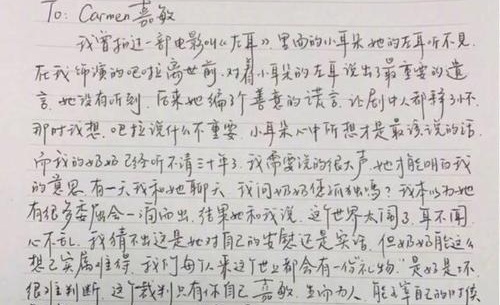 To: Carmen嘉敏
我曾拍过一部电影叫《左耳》. 里面的小耳朵她的左耳听不见.
在我饰演的吧啦离世前. 对着小耳朵的左耳说出了最重要的遗
言. 她没有听到. 后来她编了个善意的谎言. 让剧中人都释了怀.
那时我想. 吧啦说什么不重要 小耳朵心中所想才是最该说的话.
而我的奶奶已经听不清三十年了. 我需要说的很大声. 她才能明白我
的意思 有一天我和她聊天 我问奶奶您孤独吗? 我本以为她
有很多委屈会一涌而出. 结果她和我说. 这个世界太闹了. 耳不闻.
心不乱. 我猜不出这是她对自己的安慰还是实话. 但奶奶能这么
想已实属难得. 我们每个人来这个世上都会有一份礼物. "是好是坏
很难判断. 这个裁判只有你自己 嘉敏. 生而为人. 能